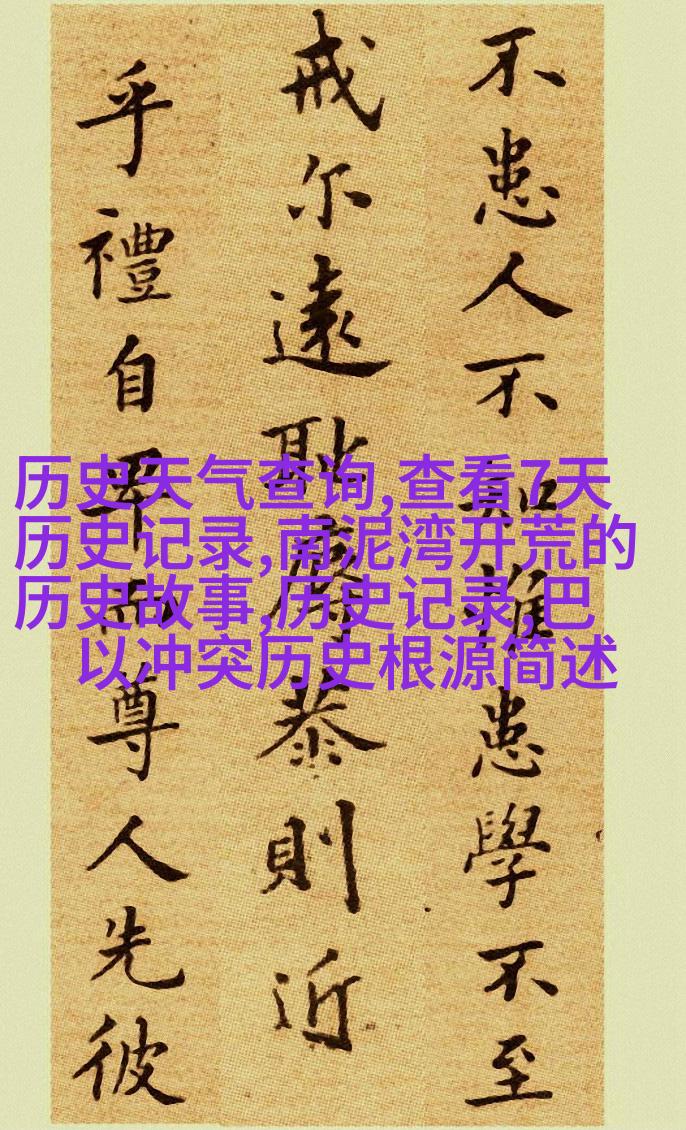 不患人不知惟患學不至
戒尔遠耻辱恭則近
乎禮自卑而尊人先彼
历史天气查询,查看7天
历史记录,南泥湾开荒的
历史故事,历史记录,巴
以冲突历史根源简述